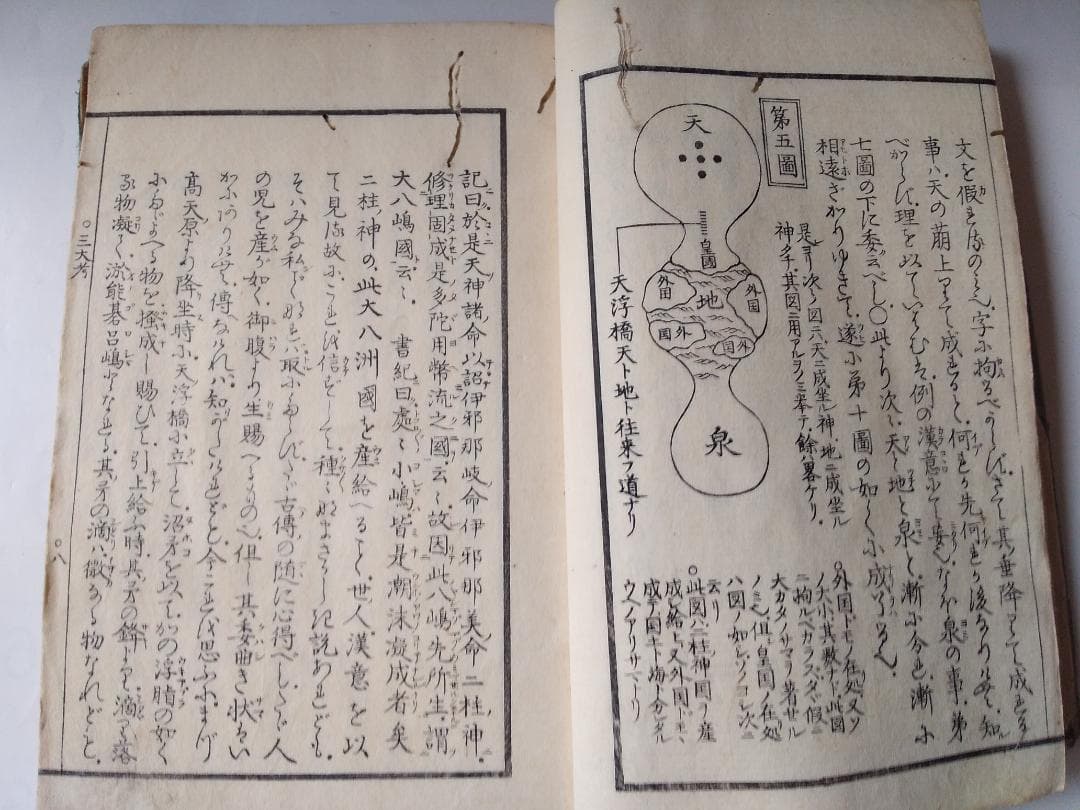 文を假れるのミぞ、字に拘るべからず、さて其垂降りて成れる
事ハ、天の萠上りて成れると、何れか先何れか後なりけむ、知
べからず、理を以ていはむは、例の漢意にて妄なり、なほ泉の事、第
七圖の下に委云べし、○此より次々、天と地と泉と、漸に分れ、漸に
相遠ざかりゆきて、遂に第十圖の如くに成りぬ、
第五圖
天
皇國
地
外国
外国
外国
外国
泉
是ヨリ次々ノ図ニ六天ニ成坐ル神、地ニ成坐ル
神タチ、其図ニ用アルヲノミ挙テ、餘ハ畧ケリ、
天浮橋天ト地ト往来フ道ナリ
○外国ドモノ在処、又ソ
ノ大小其数ナド此図
ニ拘ルベカラズ、タヾ假ニ
大カタノサマヲ著セル
ノミゾ、但シ皇国ノ在処
ハ図ノ如シ、ソノヨシ次ニ
云リ
○此図ハ二柱神国ヲ産
成シ給ヒ、又外国ドモヽ
成テ国土ト海ト分レタル
ウヘノアリサマナリ
記曰於是天神諸命以詔伊邪那岐命伊邪那美命二柱神。
修理固成是多陀用幣流之國云々故因此八嶋先所生謂
大八嶋國云々　書紀曰處々小嶋皆是潮沫凝成者矣
二柱神の、此大八洲國を産給へること、世人漢意を以
て見る故に、これを信ずして、種々なまさかしき説あれども、
そハみな私ごとなれバ、取にたらず、たゞ古傳の随に心得べし、たゞ人
の児を産が如く、御腹より生賜へるもの也、但し其委曲き状ハ、い
かにありけむ、傳なけれバ、知がたけれども、今これを思ふに、まづ
高天原より降坐時に、天浮橋に立して、沼矛を以て、かの浮脂の如く
にたゞよへる物を、掻成し賜ひて、引上給ふ時、其矛の鋒より、滴り落
る物凝て、淤能碁呂嶋となれる、其矛の滴ハ、微なる物なれども、
○三大考
○八